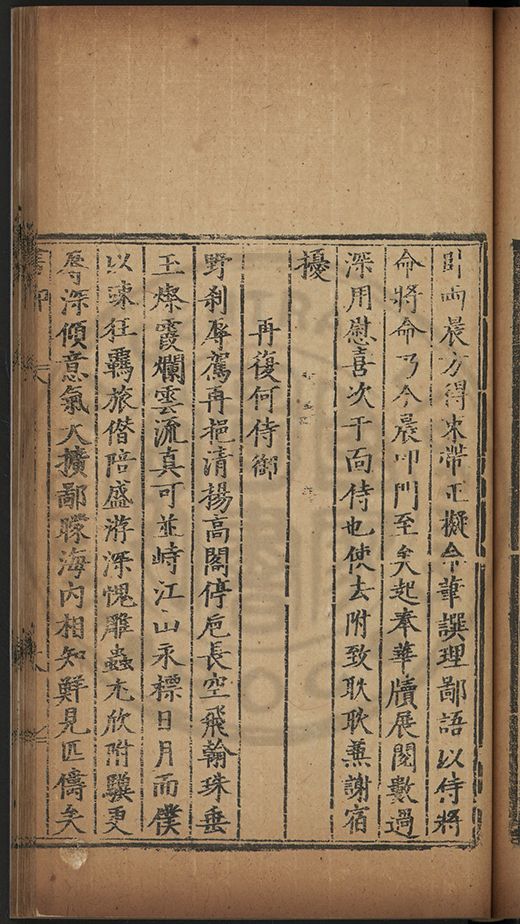 雨晨方得束帶正擬命華譔理鄙語以侍將
命將命乃今晨叩門至矣起奉華牘展閱數過
深用慰喜次于面侍也使去附致耿耿兼謝宿
擾
再復何侍御
野刹辱駕再挹清揚高閣停巵長空飛翰珠垂
玉燦霞爛雲流真可並峙江山永標日月而僕
以疎狂羇旅偕陪盛游深愧雕蟲尤欣附驥更
辱深傾意氣大擴鄙矇海內相知鮮見匹儔矣